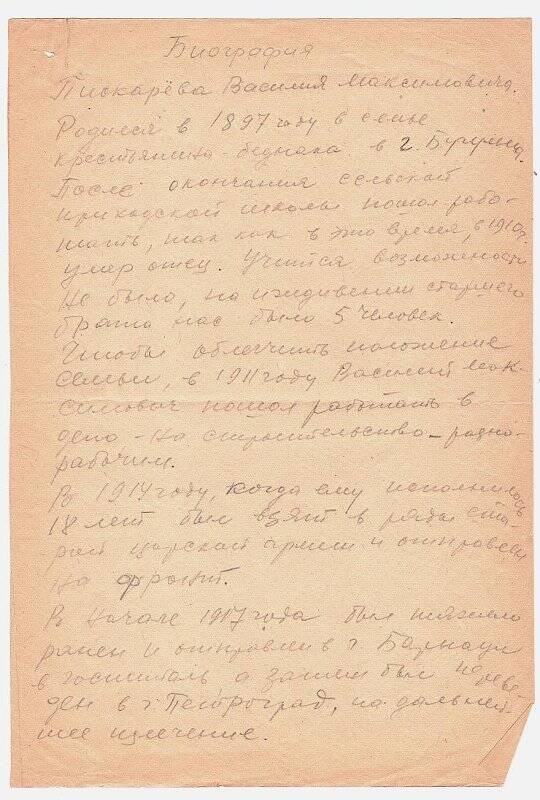 Биография
Пискарёва Василия Максимовича.
Родился в 1897 году в семье
крестьянина-бедняка в г.
После окончания сельской
приходской школы пошол рабо-
тать, так как в это время, в 1910 г.
умер отец. Учится возможности
не было, на иждивении старшего
брата нас было 5 человек.
Чтобы облегчить положение
семьи, в 1911 году Василий Мак-
симович пошол работать в
депо - на строительство - разно-
рабочим.
В 1914 году, когда ему исполнилось
18 лет был взят в ряды ста-
рой царской армии и отправлен
на фронт.
В начале 1917 года был тяжело
ранен и отправлен в г. Барнаул
в госпиталь а затем был переве-
ден в г. Петроград, на дальней-
шее излечение.